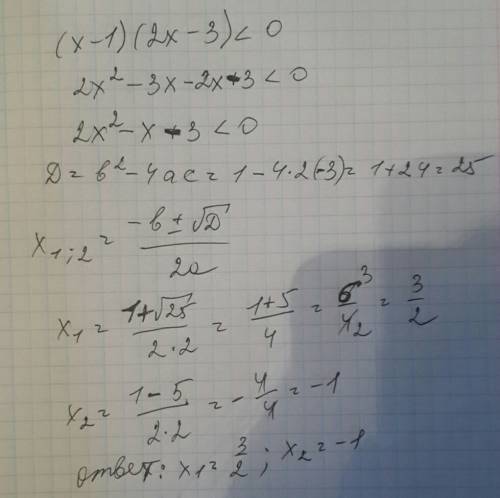 (x-1)(2x-3)<0
2x²-3x-2x-3<0
2x²-x-3<0
D=b²-4ac=1-4·2(-3)=1+24=25
x₁;₂=(-b±√D)/2a
x₁=(1+√25)/2·2=(1+5)/4=6³/4₂=3/2
x₂=(1-5)/2·2=-4/4=-1
ответ: x₁=3/2; x₂=-1